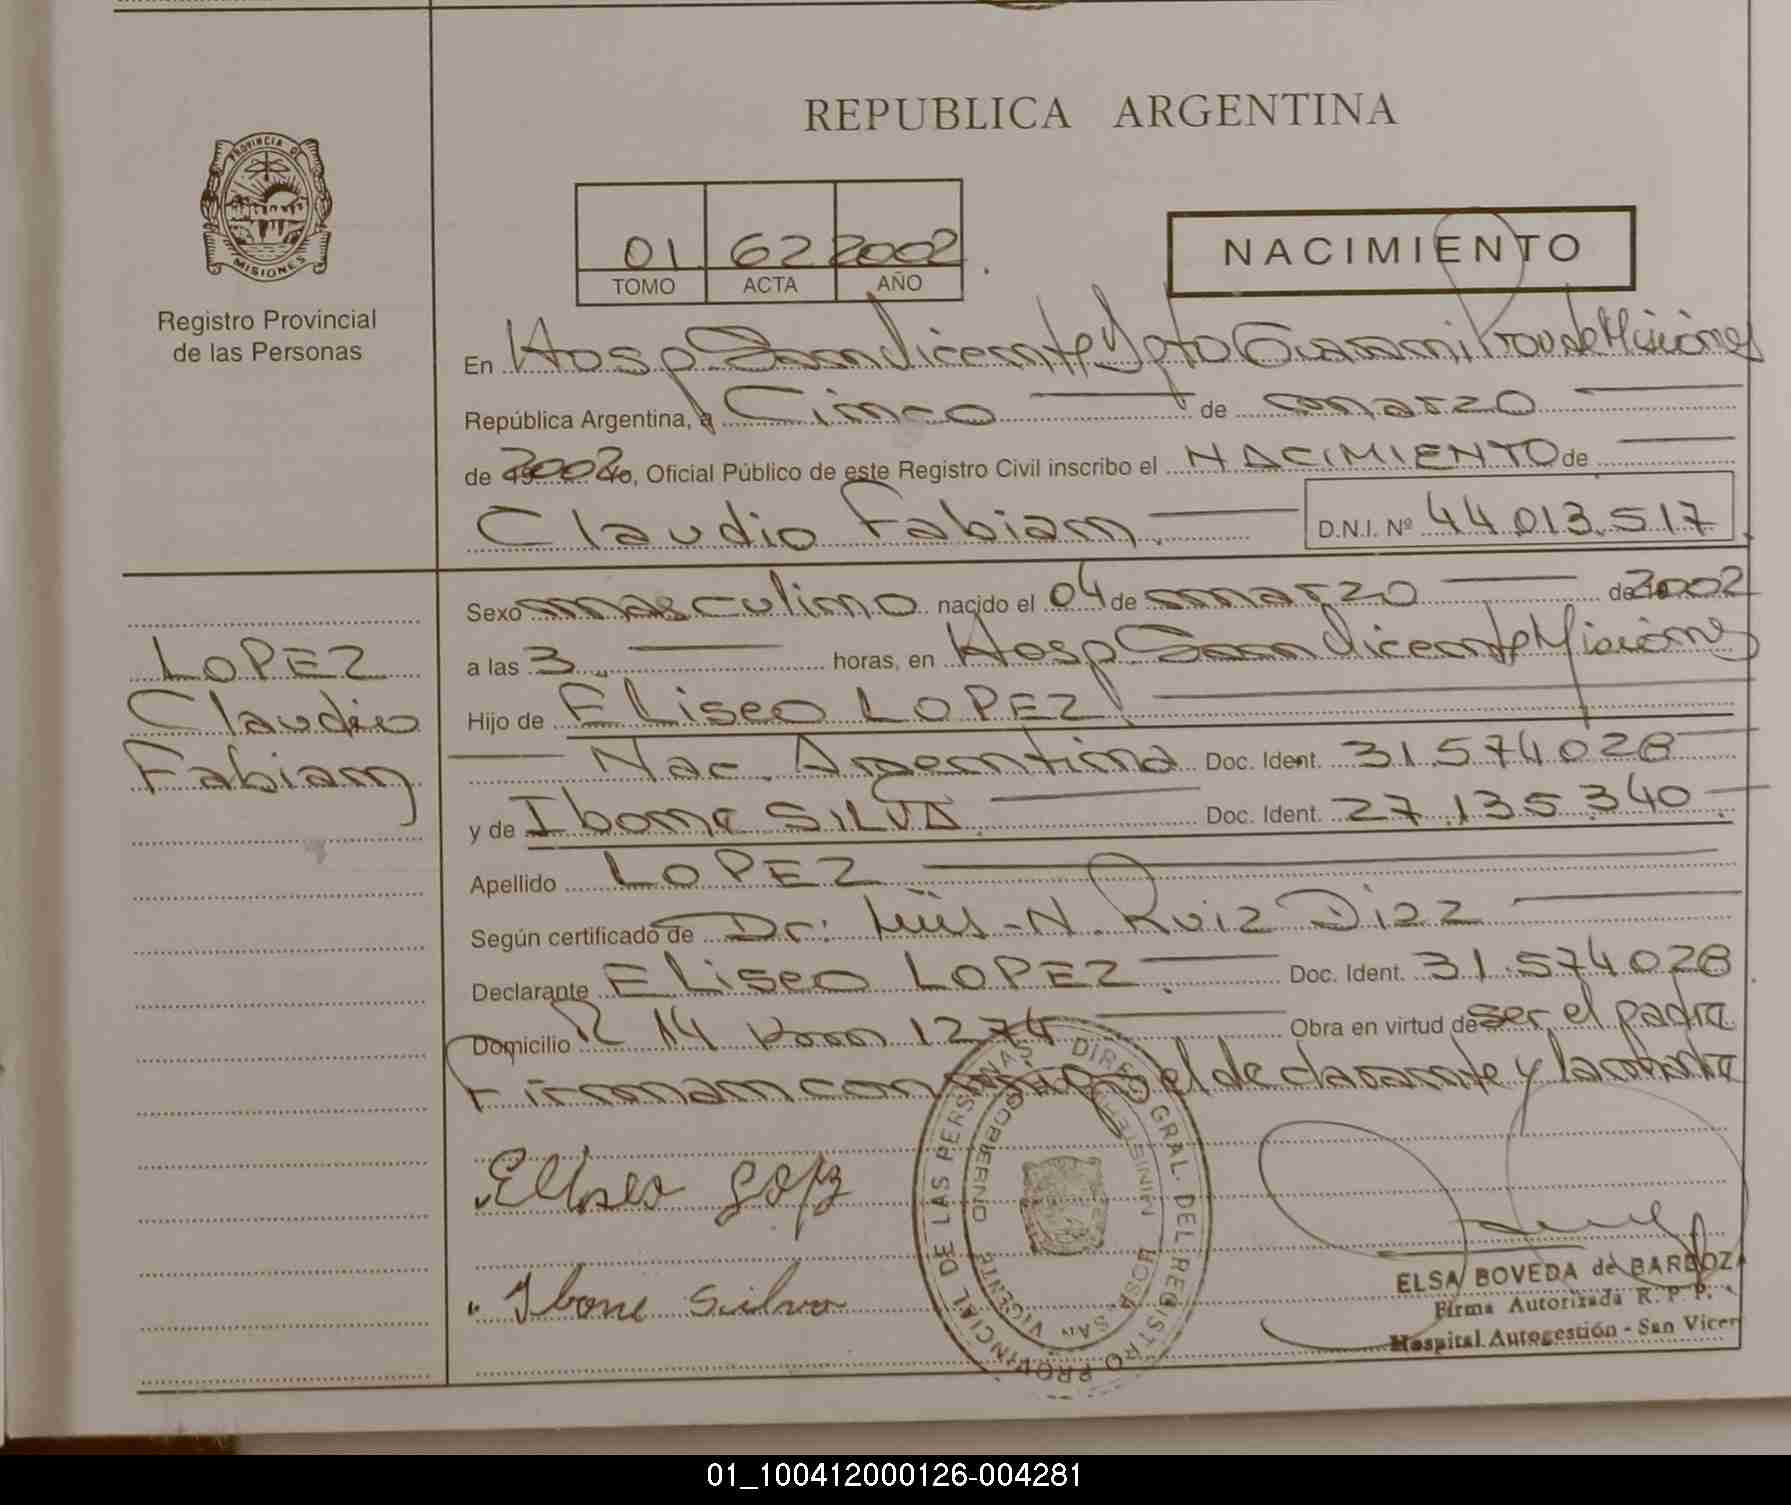 REPUBLICA ARGENTINA
PROVINCIA DE
MISIONES
Registro Provincial
de las Personas
01 62 2002
TOMO ACTA AÑO
NACIMIENTO
En Hosp San Vicente Dpto Guarani Prov de Misiones
República Argentina, a Cinco de marzo
de 2002 Yo, Oficial Público de este Registro Civil inscribo el NACIMIENTO de
Claudio Fabian D.N.I. Nº 44.013.517
LOPEZ
Claudio
Fabian
Sexo masculino nacido el 04 de marzo de 2002
a las 3 horas, en Hosp San Vicente Misiones
Hijo de Eliseo LOPEZ
Nac. Argentina Doc. Ident. 31.574.028
y de Ibone SILVA Doc. Ident. 27.135.340
Apellido LOPEZ
Según certificado de Dr: Luis - N. Ruiz Diaz
Declarante ELiseo LOPEZ Doc. Ident. 31.574.028
Domicilio R 14 Km 1274 Obra en virtud de ser el padre
Firman con el declarante y la madre
Eliseo Lopez
Ibone Silva
DIREC. GRAL. DEL REGISTRO PROVINCIAL DE LAS PERSONAS
GOBIERNO
SAN VICENTE
ELSA BOVEDA de BARBOZA
Firma Autorizada R. P. P.
Hospital Autogestión - San Vicen
01_100412000126-004281